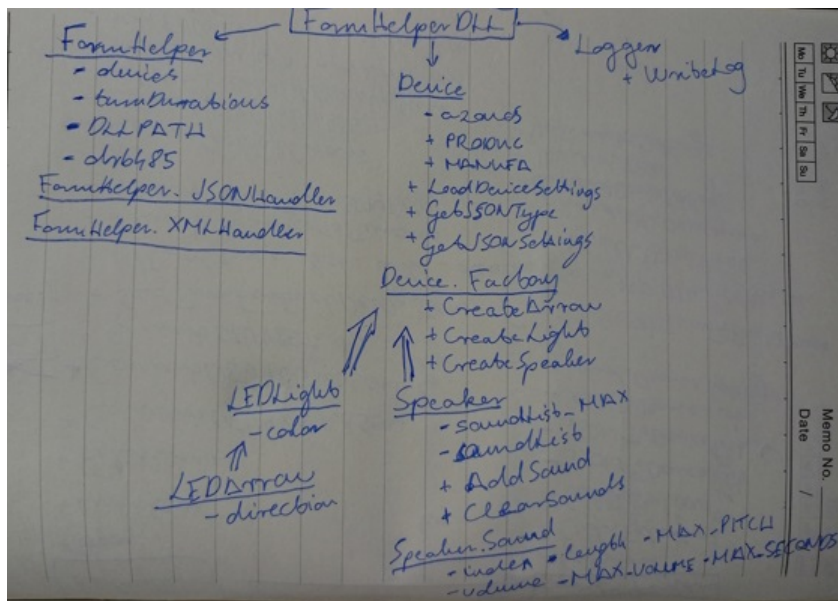 FormHelperDLL
FormHelper
- devices
- turnDurations
- DLLPATH
- drb485
FormHelper.JSONHandler
FormHelper.XMLHandler
Device
- azonos
+ PRODUC
+ MANUFA
+ LoadDeviceSettings
+ GetJSONType
+ GetJSONSettings
Device.Factory
+ CreateArrow
+ CreateLight
+ CreateSpeaker
Logger
+ WriteLog
LEDLight
- color
LEDArrow
- direction
Speaker
- soundList_MAX
- soundList
+ AddSound
+ ClearSounds
Speaker.Sound
- index - length - MAX_PITCH
- volume - MAX_VOLUME - MAX_SECONDS
Mo Tu We Th Fr Sa Su
Memo No.
Date /